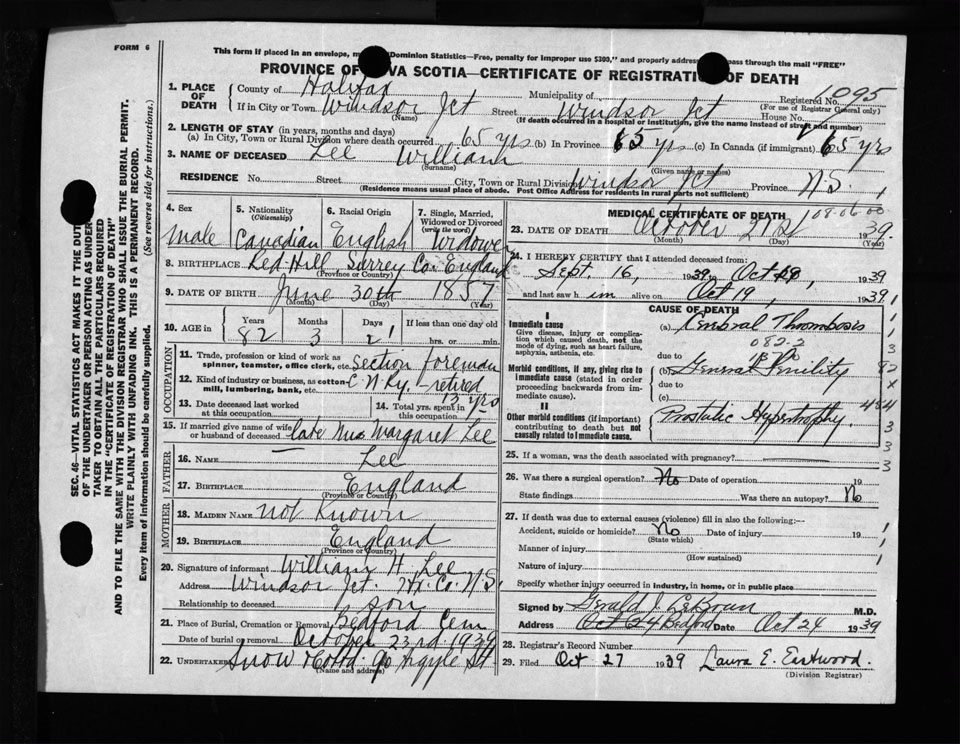 FORM 6
This form if placed in an envelope, "Dominion Statistics—Free, penalty for improper use $300," and properly address pass through the mail "FREE"
PROVINCE OF VA SCOTIA—CERTIFICATE OF REGISTRATION OF DEATH
SEC. 46—VITAL STATISTICS ACT MAKES IT THE DUTY
OF THE UNDERTAKER OR PERSON ACTING AS UNDER-
TAKER TO OBTAIN ALL THE PARTICULARS REQUIRED
IN THE "CERTIFICATE OF REGISTRATION OF DEATH"
AND TO FILE THE SAME WITH THE DIVISION REGISTRAR WHO SHALL ISSUE THE BURIAL PERMIT.
WRITE PLAINLY WITH UNFADING INK. THIS IS A PERMANENT RECORD.
Every item of information should be carefully supplied. (See reverse side for instructions.)
1. PLACE OF DEATH County of Halifax Municipality of Registered No. 1095
(For use of Registrar General only)
If in City or Town Windsor Jct Street Windsor Jct House No.
(Name) (If death occurred in a hospital or Institution, give the name instead of street and number)
2. LENGTH OF STAY (in years, months and days)
(a) In City, Town or Rural Division where death occurred 65 yrs (b) In Province 65 yrs (c) In Canada (if immigrant) 65 yrs
3. NAME OF DECEASED Lee William
(Surname) (Given name or names)
RESIDENCE No. Street City, Town or Rural Division Windsor Jct Province N.S.
(Residence means usual place of abode. Post Office Address for residents in rural parts not sufficient)
4. Sex 5. Nationality (Citizenship) 6. Racial Origin 7. Single, Married, Widowed or Divorced (write the word)
Male Canadian English Widower
8. BIRTHPLACE Red-Hill Surrey Co. England
(Province or Country)
9. DATE OF BIRTH June 30th 1857
(Month) (Day) (Year)
10. AGE in Years Months Days If less than one day old
82 3 21 hrs. or min.
OCCUPATION
11. Trade, profession or kind of work as spinner, teamster, office clerk, etc. Section foreman
12. Kind of industry or business, as cotton-mill, lumbering, bank, etc. C N Ry. - retired
13. Date deceased last worked at this occupation 14. Total yrs. spent in this occupation 13 yrs
15. If married give name of wife or husband of deceased late Mrs Margaret Lee
FATHER
16. NAME Lee
17. BIRTHPLACE England
(Province or Country)
MOTHER
18. MAIDEN NAME not known
19. BIRTHPLACE England
(Province or Country)
20. Signature of informant William H. Lee
Address Windsor Jct. Hx. Co. N.S.
Relationship to deceased son
21. Place of Burial, Cremation or Removal Bedford Cem
Date of burial or removal October 23rd 1939
22. Undertaker Snow & Co Ltd 90 Argyle St
(Name and address)
MEDICAL CERTIFICATE OF DEATH
08-06-00
23. DATE OF DEATH October 21st 1939
(Month) (Day) (Year)
24. I HEREBY CERTIFY that I attended deceased from:
Sept 16, 1939 to Oct 1939
and last saw him alive on Oct 19, 1939
CAUSE OF DEATH
I
Immediate cause
Give disease, injury or complication which caused death, not the mode of dying, such as heart failure, asphyxia, asthenia, etc.
(a) Cerebral Thrombosis
082-2
due to
Morbid conditions, if any, giving rise to immediate cause (stated in order proceeding backwards from immediate cause).
(b) General Senility
due to
(c)
II
Other morbid conditions (if important) contributing to death but not causally related to immediate cause.
Prostatic Hypertrophy.
25. If a woman, was the death associated with pregnancy?
26. Was there a surgical operation? No Date of operation 19
State findings Was there an autopsy? No
27. If death was due to external causes (violence) fill in also the following:—
Accident, suicide or homicide? No Date of injury 19
(State which)
Manner of injury
(How sustained)
Nature of injury
Specify whether injury occurred in industry, in home, or in public place
Signed by Gerald J. M.D.
Address Bedford Date Oct 24 1939
28. Registrar's Record Number
29. Filed Oct 27 1939 Laura E. Eastwood.
(Division Registrar)